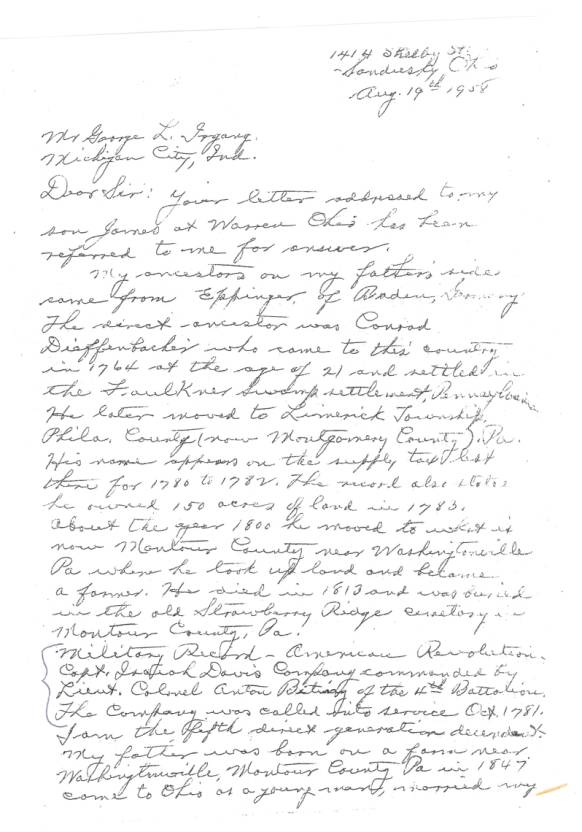 1414 Shelby St.
Sandusky Ohio
Aug. 19th 1958
Mr George L. Irgang.
Michigan City, Ind.
Dear Sir: Your letter addressed to my
son James at Warren Ohio has been
referred to me for answer.
My ancestors on my father's side
came from Eppinger, of Baden, Germany
The direct ancestor was Conrad
Dieffenbacher who came to this country
in 1764 at the age of 21 and settled in
the Faulkner Swamp settlement, Pennsylvania
He later moved to Limerick Township,
Phila. County (now Montgomery County), Pa.
His name appears on the supply tax list
there for 1780 to 1782. The record also states
he owned 150 acres of land in 1783.
About the year 1800 he moved to what is
now Montour County near Washingtonville
Pa where he took up land and became
a farmer. He died in 1813 and was buried
in the old Strawberry Ridge cemetery in
Montour County, Pa.
Military Record - American Revolution.
Capt. Isaiah Davis Company commanded by
Lieut. Colonel Anton of the 4th Battalion.
The Company was called into service Oct. 1781.
I am the fifth direct generation decendent.
My father was born on a farm near
Washingtonville, Montour County Pa in 1847
came to Ohio as a young man, married my